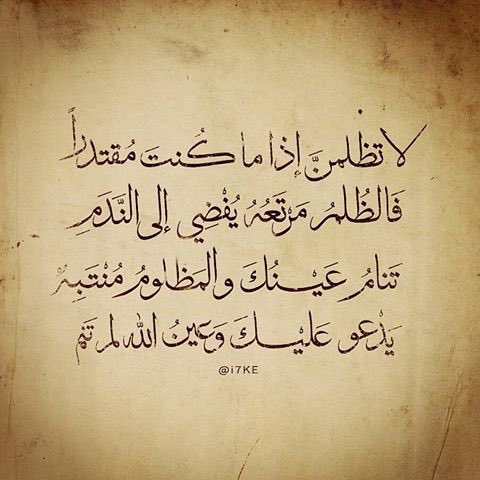 لا تظلمنَّ إذا ما كُنت مُقتدراً
فَالظُلمُ مَرتَعُهُ يُفْضِي إلى النَّدَمِ
تَنامُ عَيْنُكَ والمَظلومُ مُنْتَبِهٌ
يَدْعو عَليْكَ وَعينُ الله لم تَنَمِ
@i7KE